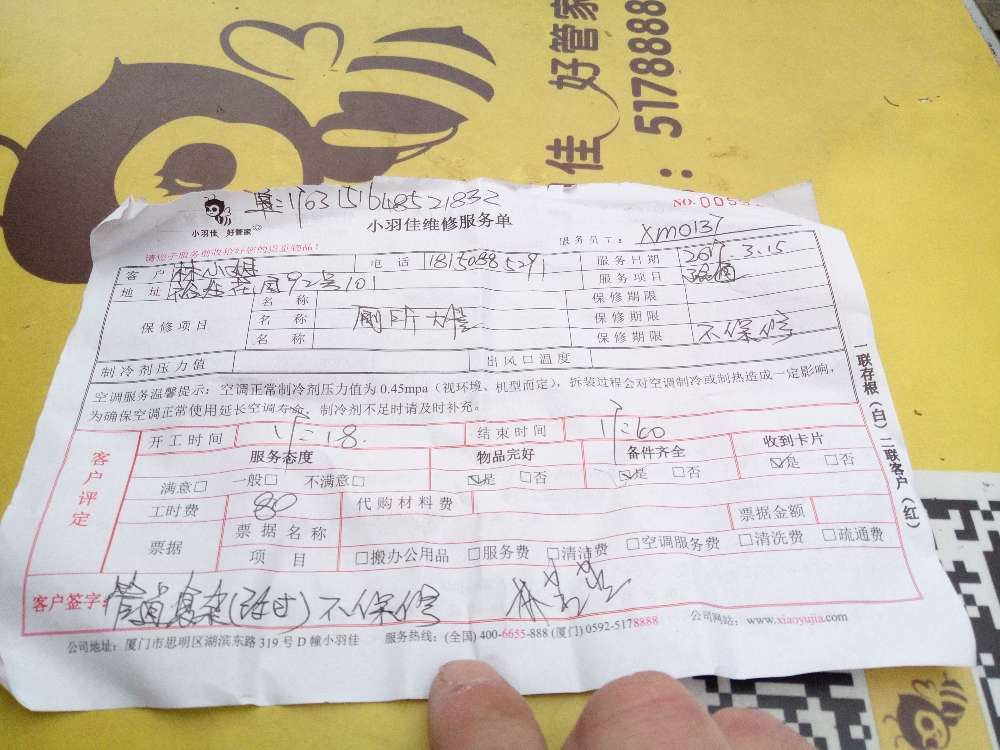 好管家
佳
: 5178888
单:1763151648521832
小羽佳 好管家
小羽佳维修服务单
NO. 005
请您于服务前收拾好您的贵重物品!
服务员工: XM0137
客户 林小姐 电话 18150885291 服务日期 2017 3.15
地址 花园92号101 服务项目
保修项目 名称 保修期限
名称 保修期限
名称 保修期限 不保修
制冷剂压力值 出风口温度
空调服务温馨提示:空调正常制冷剂压力值为 0.45mpa(视环境、机型而定),拆装过程会对空调制冷或制热造成一定影响,
为确保空调正常使用延长空调寿命,制冷剂不足时请及时补充。
一联存根(白)二联客户(红)
客户评定
开工时间 结束时间
服务态度 物品完好 备件齐全 收到卡片
满意□ 一般□ 不满意□ ☑是 □否 ☑是 □否 ☑是 □否
工时费 80 代购材料费 票据金额
票据 票据名称
项目 □搬办公用品 □服务费 □清洁费 □空调服务费 □清洗费 □疏通费
客户签字: 管道复杂( )不保修
公司地址:厦门市思明区湖滨东路 319 号 D 幢小羽佳 服务热线:(全国) 400-6655-888 (厦门) 0592-5178888 公司网站:www.xiaoyujia.com